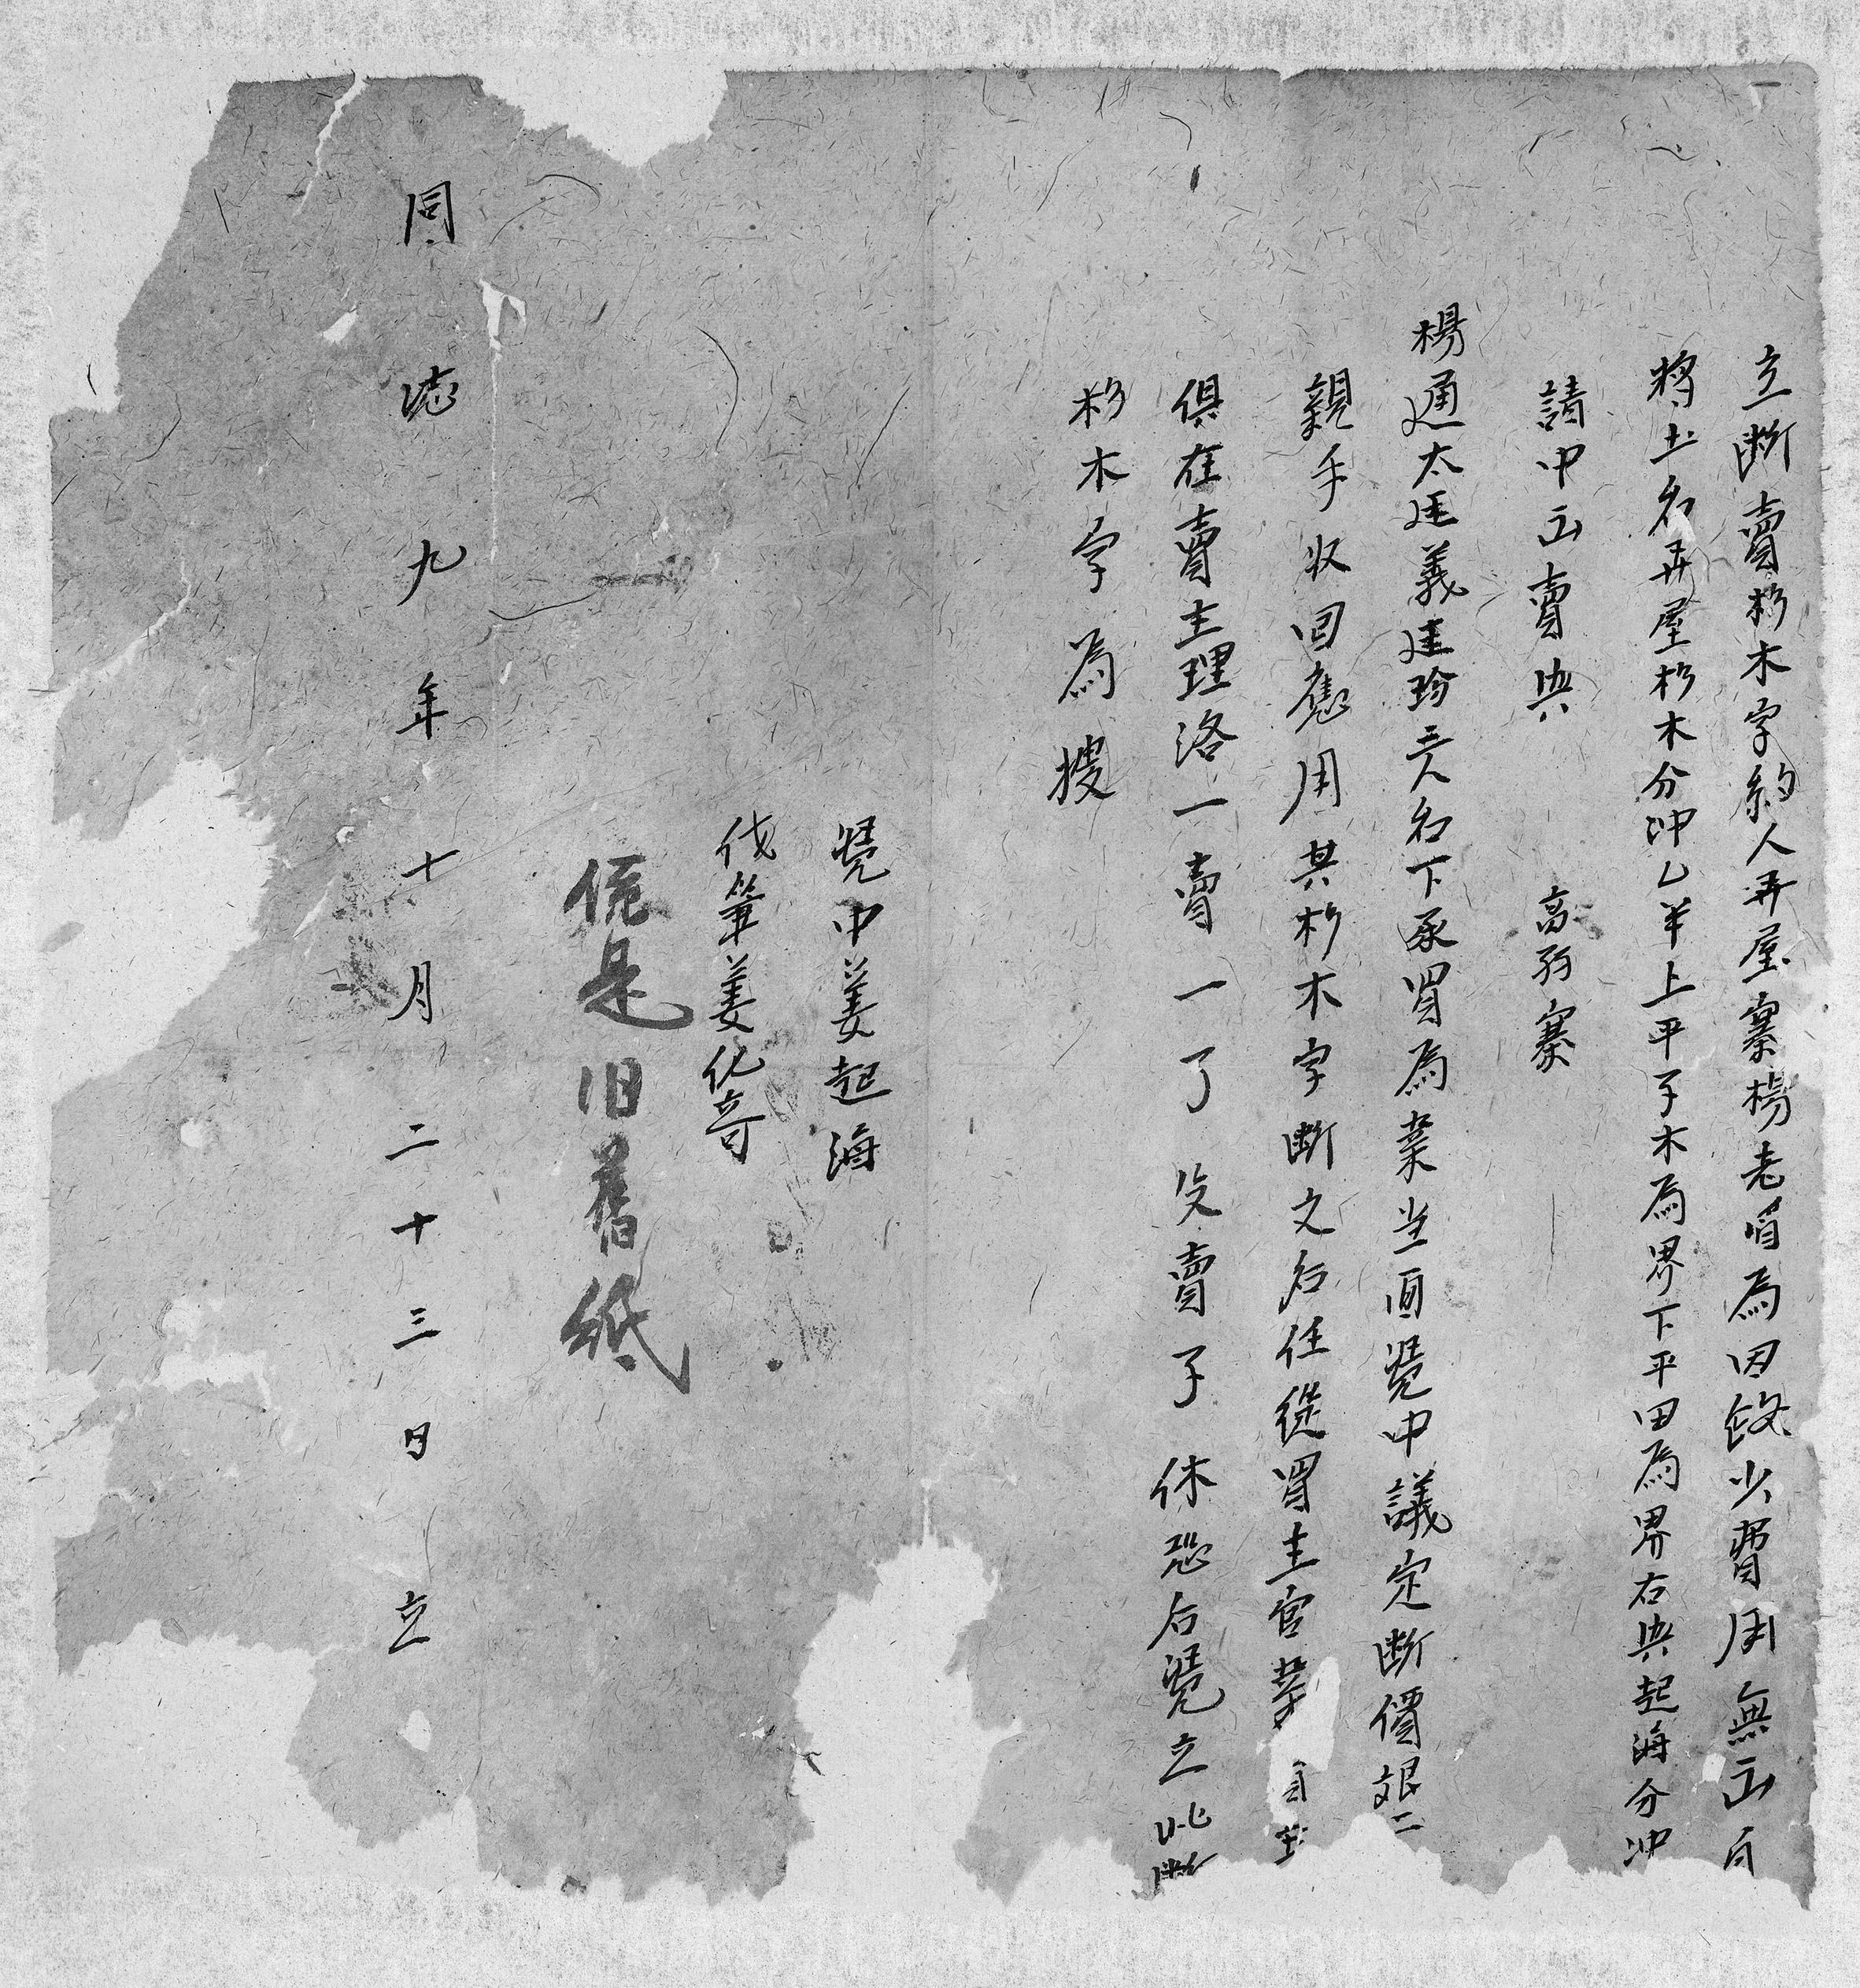 立断賣杉木字約人弄屋寨楊老眉為因缺少費用無出自
將土名弄屋杉木分冲乚半上平子木為界下平田為界右與起海分冲
請中出賣與 高弱寨
楊通太廷義廷珍三人名下承買為業当面凴中議定断價艮二
親手收回應用其杉木字断之后任從買主官業
俱在賣主理洛一賣一了父賣子休恐后凴立此断
杉木字為㨗
凴中姜起海
代筆姜化奇
俱是旧舊紙
同治九年十月二十三日立